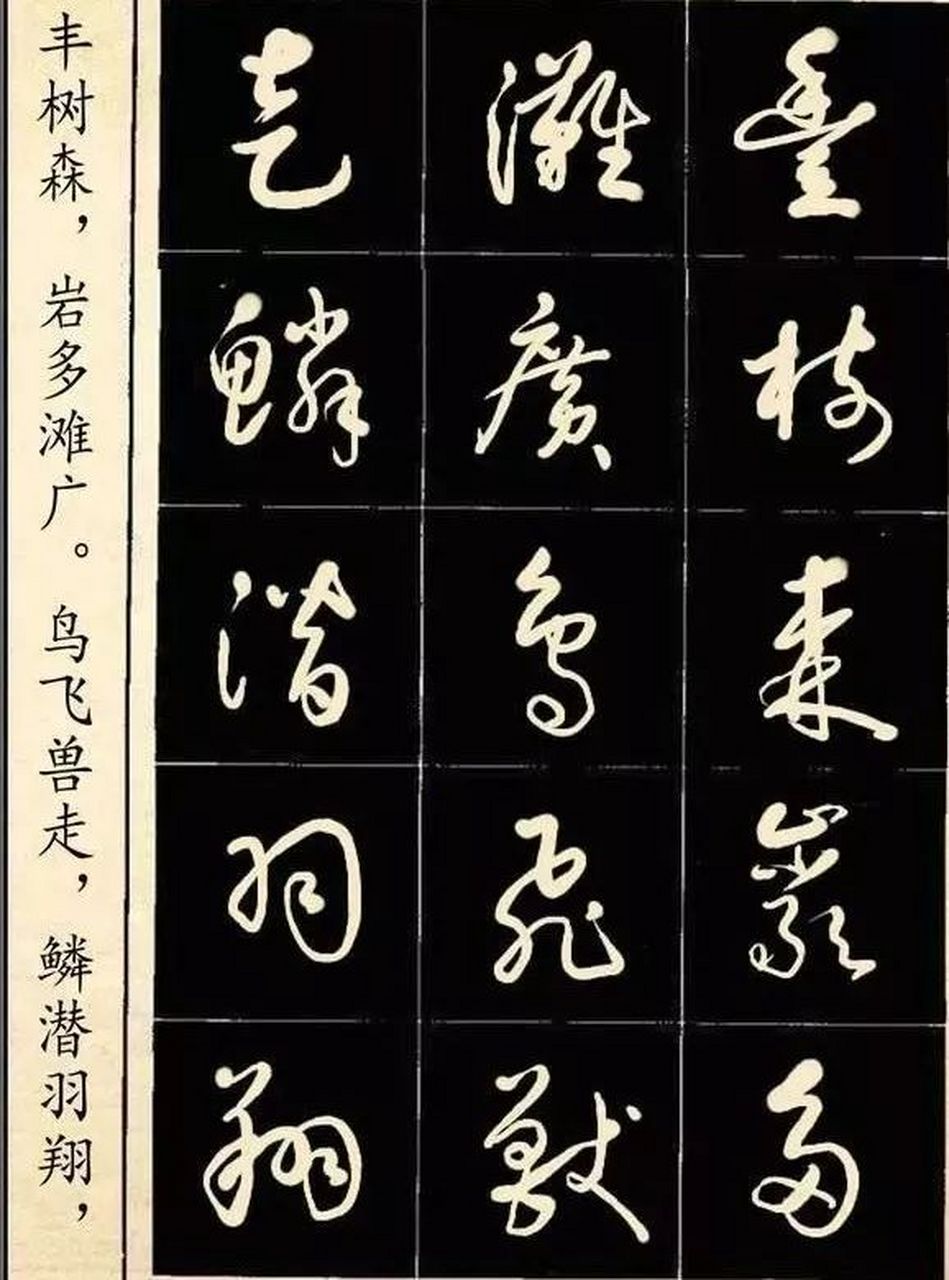 豐樹森巖多
灘廣鳥飛獸
走鱗潛羽翔
丰树森，岩多滩广。鸟飞兽走，鳞潜羽翔，